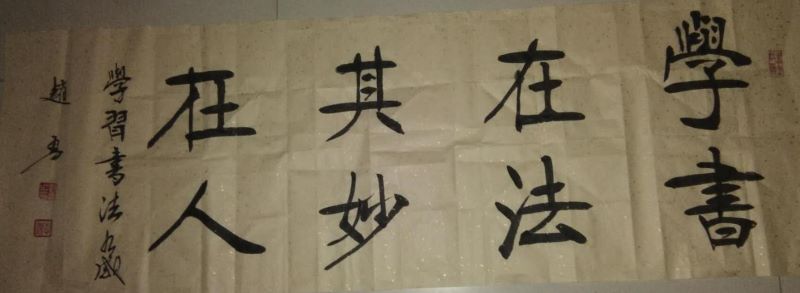 學書
在法
其妙
在人
學習書法
趙